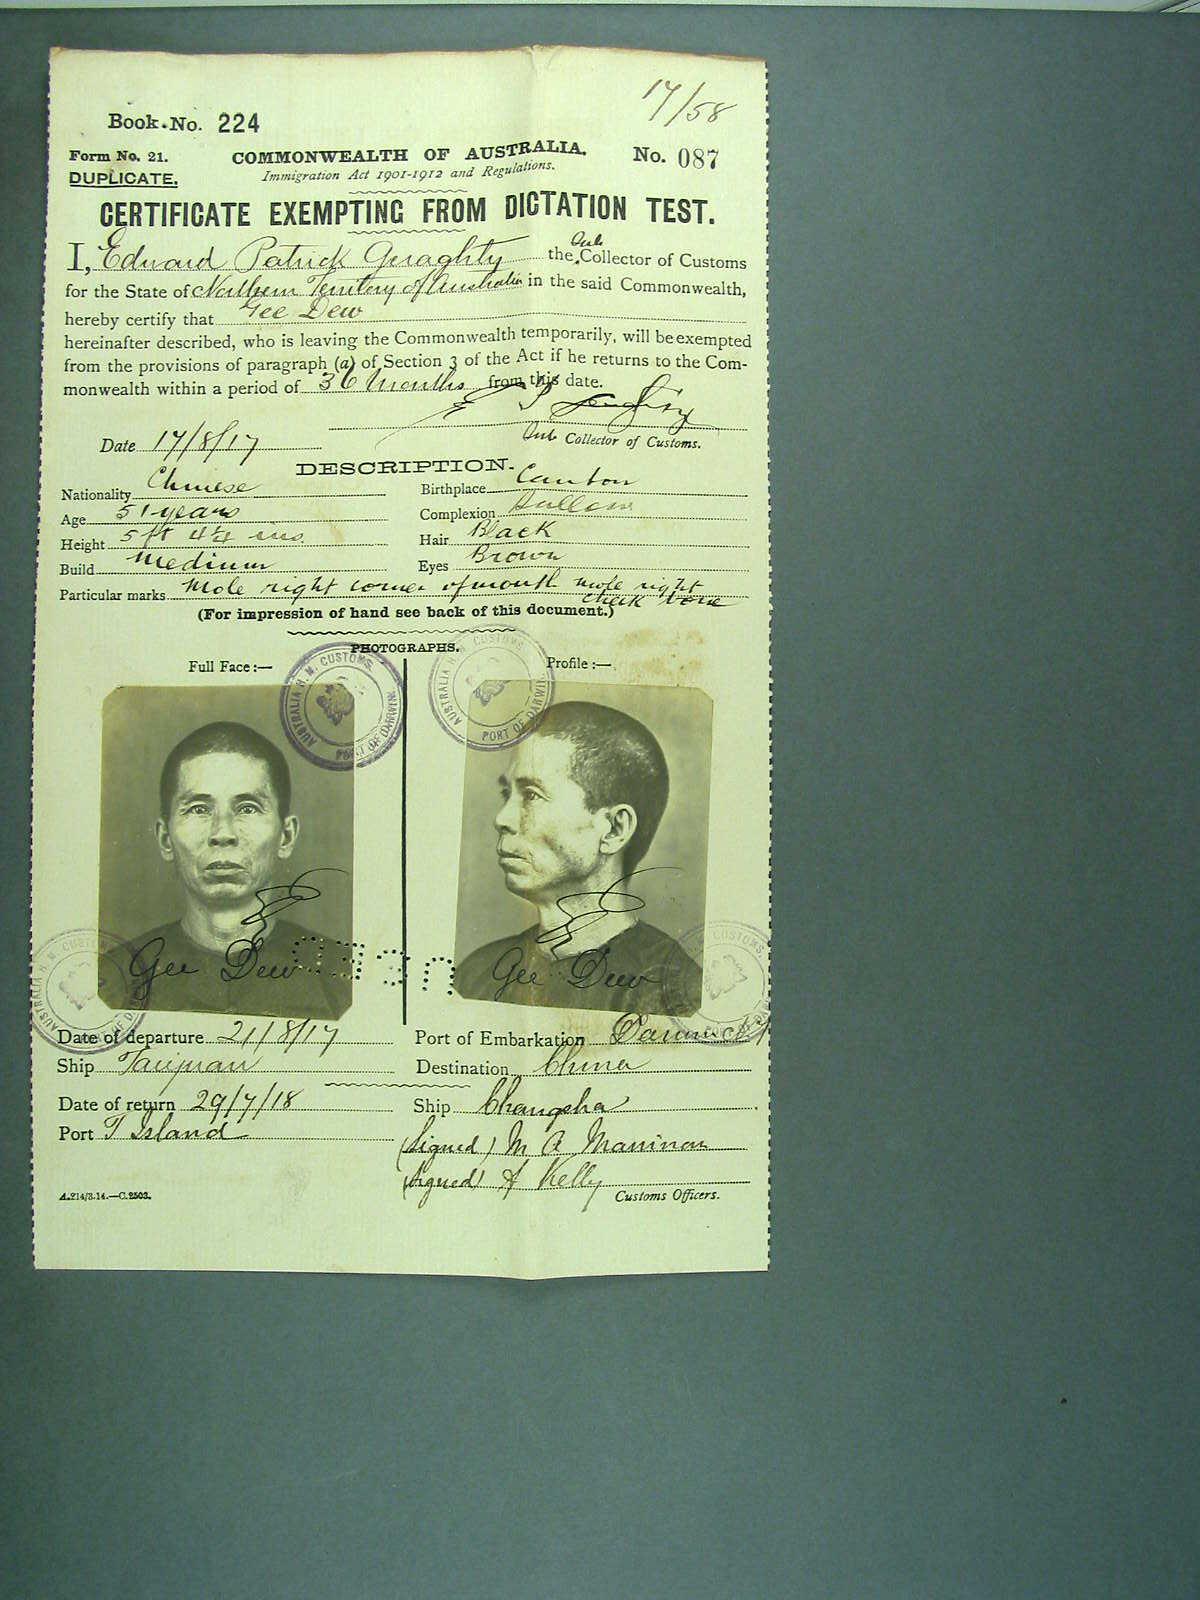 17/58
Book No. 224
Form No. 21. COMMONWEALTH OF AUSTRALIA. No. 087
DUPLICATE. Immigration Act 1901-1912 and Regulations.
CERTIFICATE EXEMPTING FROM DICTATION TEST.
I, Edward Patrick Geraghty the Sub Collector of Customs
for the State of Northern Territory of Australia in the said Commonwealth,
hereby certify that Gee Dew
hereinafter described, who is leaving the Commonwealth temporarily, will be exempted
from the provisions of paragraph (a) of Section 3 of the Act if he returns to the Com-
monwealth within a period of 36 Months from this date.
Date 17/8/17 Sub Collector of Customs.
DESCRIPTION.
Nationality Chinese Birthplace Canton
Age 51 years Complexion Sallow
Height 5 ft 4¼ ins Hair Black
Build Medium Eyes Brown
Particular marks Mole right corner of mouth mole right
cheek bone
(For impression of hand see back of this document.)
PHOTOGRAPHS.
Full Face :— Profile :—
AUSTRALIA H. M. CUSTOMS. PORT OF DARWIN
AUSTRALIA H. M. CUSTOMS PORT OF DARWIN
Gee Dew Gee Dew
Date of departure 21/8/17 Port of Embarkation Darwin
Ship Taiyuan Destination China
Date of return 29/7/18 Ship Changsha
Port T Island (Signed) M A Mannion
(Signed) A Kelly
A.214/3.14.—C.2503. Customs Officers.